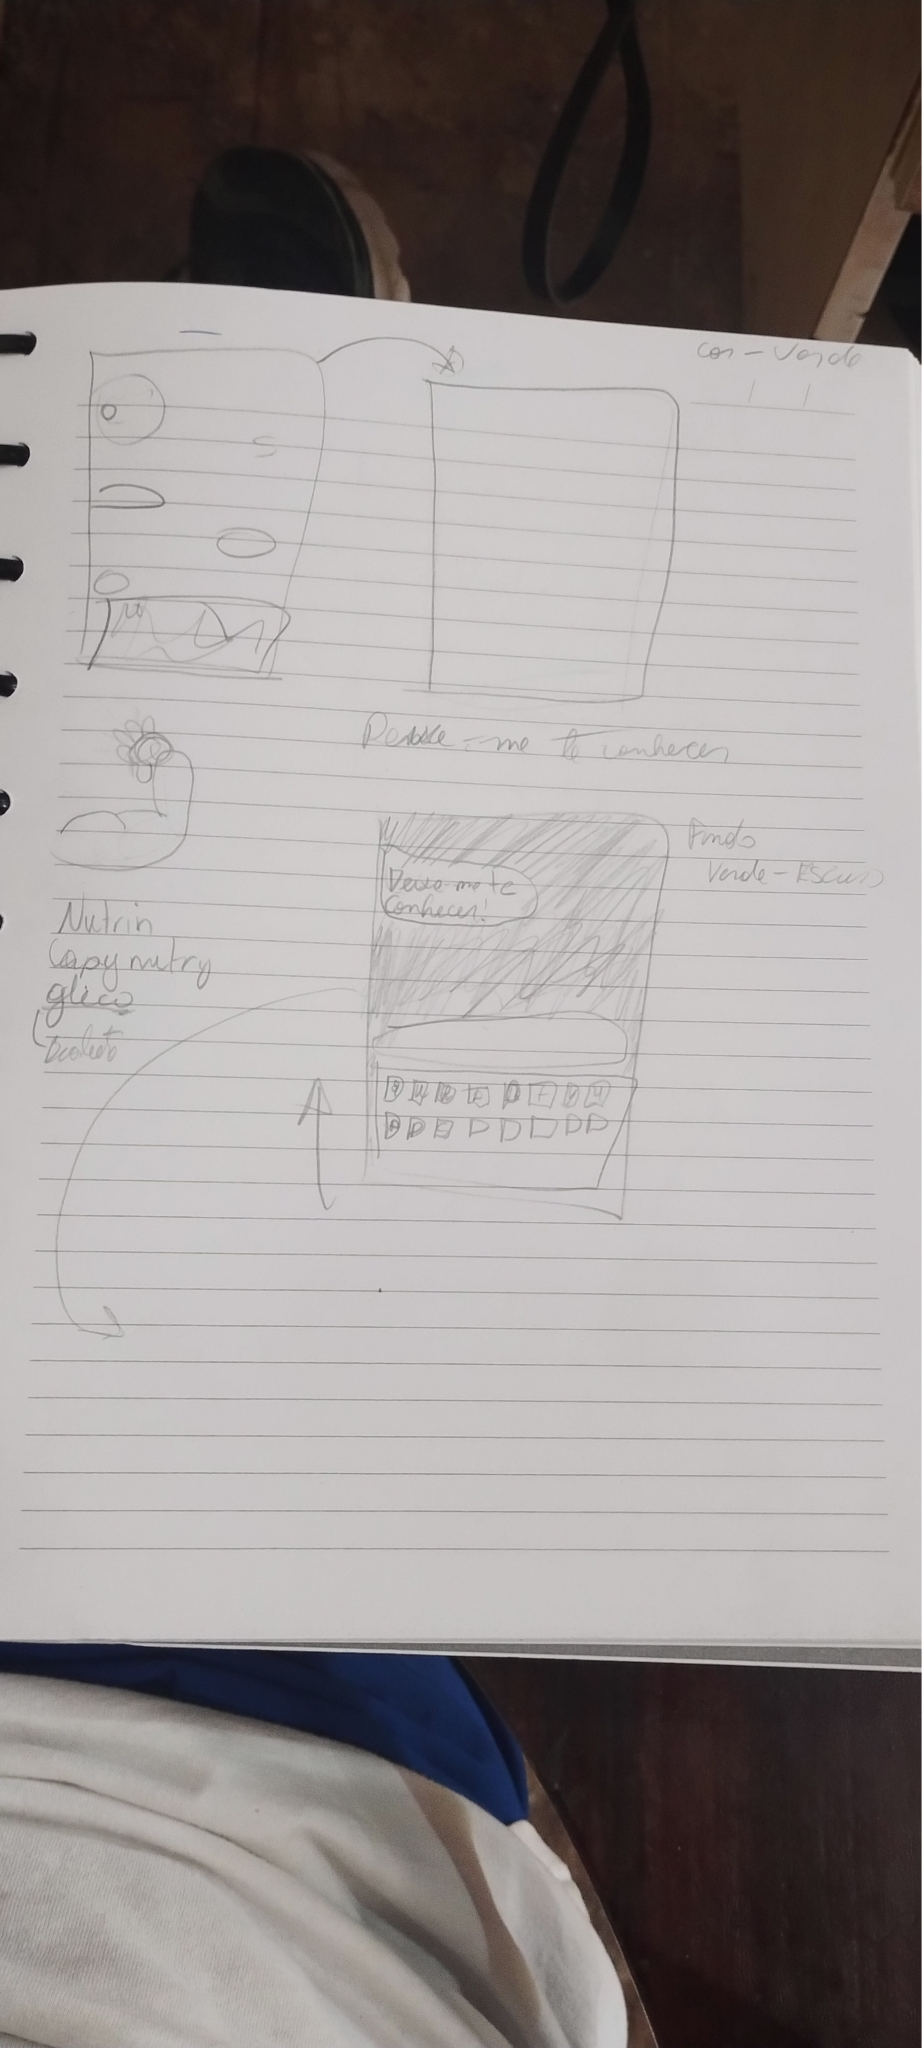 Cor - Verde
Deixe-me te conhecer
Fundo
Verde-Escuro
Deixe-me te
conhecer!
Nutrin
Capynutry
glico